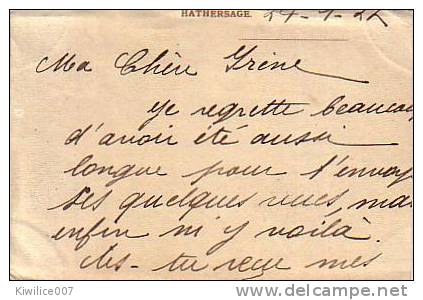 HATHERSAGE. 27-1-22
Ma Chère Irène
Je regrette beaucoup
d'avoir été aussi
longue pour t'envoy
ces quelques vues, mai
enfin m'y voilà.
As-tu reçu mes
Kwilice007
delcampe.net